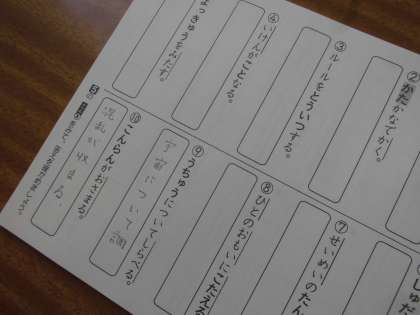 ② かたかなでかく。
③ ルールをとういつする。
④ いけんがことなる。
きゅうをみたす。
⑦ せいめいのたん
⑧ ひとのおもいにこたえる
⑨ うちゅうについてしらべる。
宇宙について調
⑩ こんらんがおさまる。
混乱が収まる。